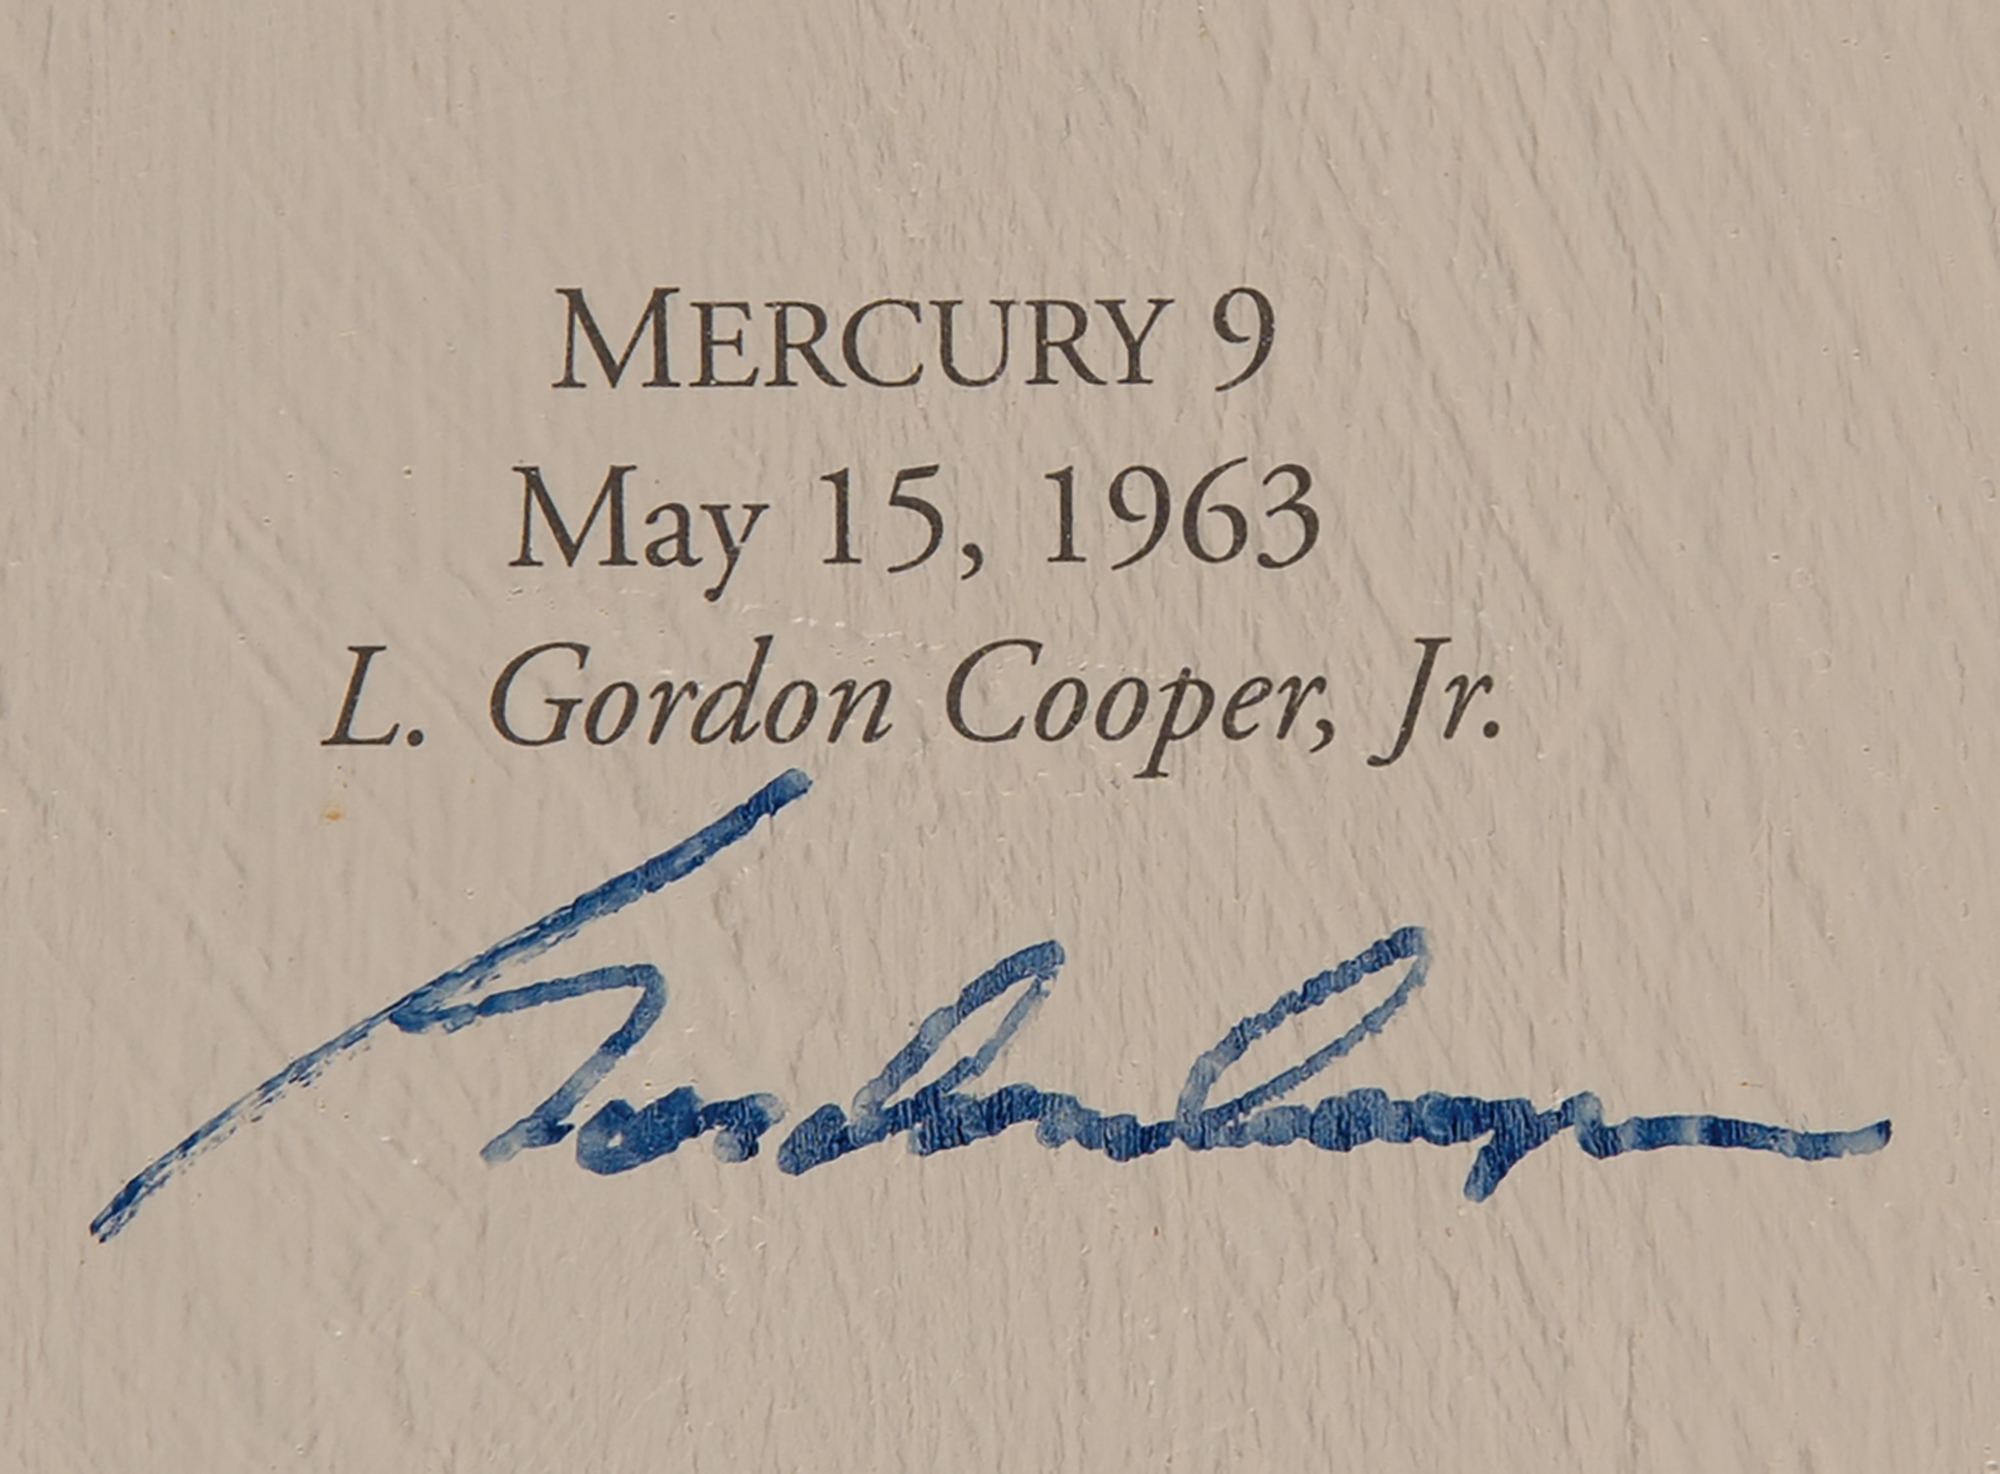 MERCURY 9
May 15, 1963
L. Gordon Cooper, Jr.
Gordon Cooper